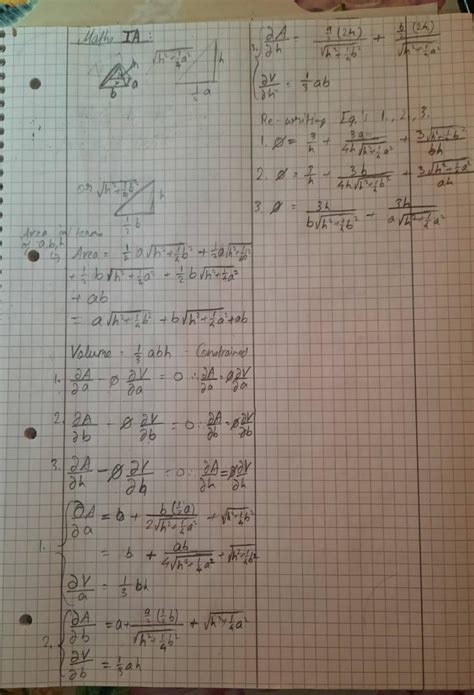 Maths IA:
√h²+¼a²
h
½a
h
b
a
or √h²+¼b²
h
½b
Area in terms
of a,b,h
↳ Area = ½ a√h²+¼b² + ½a√h²+¼b²
+ ½ b√h²+¼a² + ½b√h²+¼a²
+ ab
= a√h²+¼b² + b√h²+¼a² + ab
Volume = ⅓ abh - Constrained
1. ∂A/∂a - ∅ ∂V/∂a = 0 ∴ ∂A/∂a = ∅ ∂V/∂a
2. ∂A/∂b - ∅ ∂V/∂b = 0 ∴ ∂A/∂b = ∅ ∂V/∂b
3. ∂A/∂h - ∅ ∂V/∂h = 0 ∴ ∂A/∂h = ∅ ∂V/∂h
1. { ∂A/∂a = b + b(½a)/2√h²+¼a² + √h²+¼b²
= b + ab/4√h²+¼a² + √h²+¼b²
∂V/a = ⅓ bh
2. { ∂A/∂b = a + a/2(½b)/√h²+¼b² + √h²+¼a²
∂V/∂b = ⅓ ah
3. { ∂A/∂h = a/2(2h)/√h²+¼b² + b/2(2h)/√h²+¼a²
∂V/∂h = ⅓ ab
Re-writing Eq.'s 1., 2., 3.
1. ∅ = 3/h + 3a/4h√h²+¼a² + 3√h²+¼b²/bh
2. ∅ = 3/h + 3b/4h√h²+¼b² + 3√h²+¼a²/ah
3. ∅ = 3h/b√h²+¼b² + 3h/a√h²+¼a²